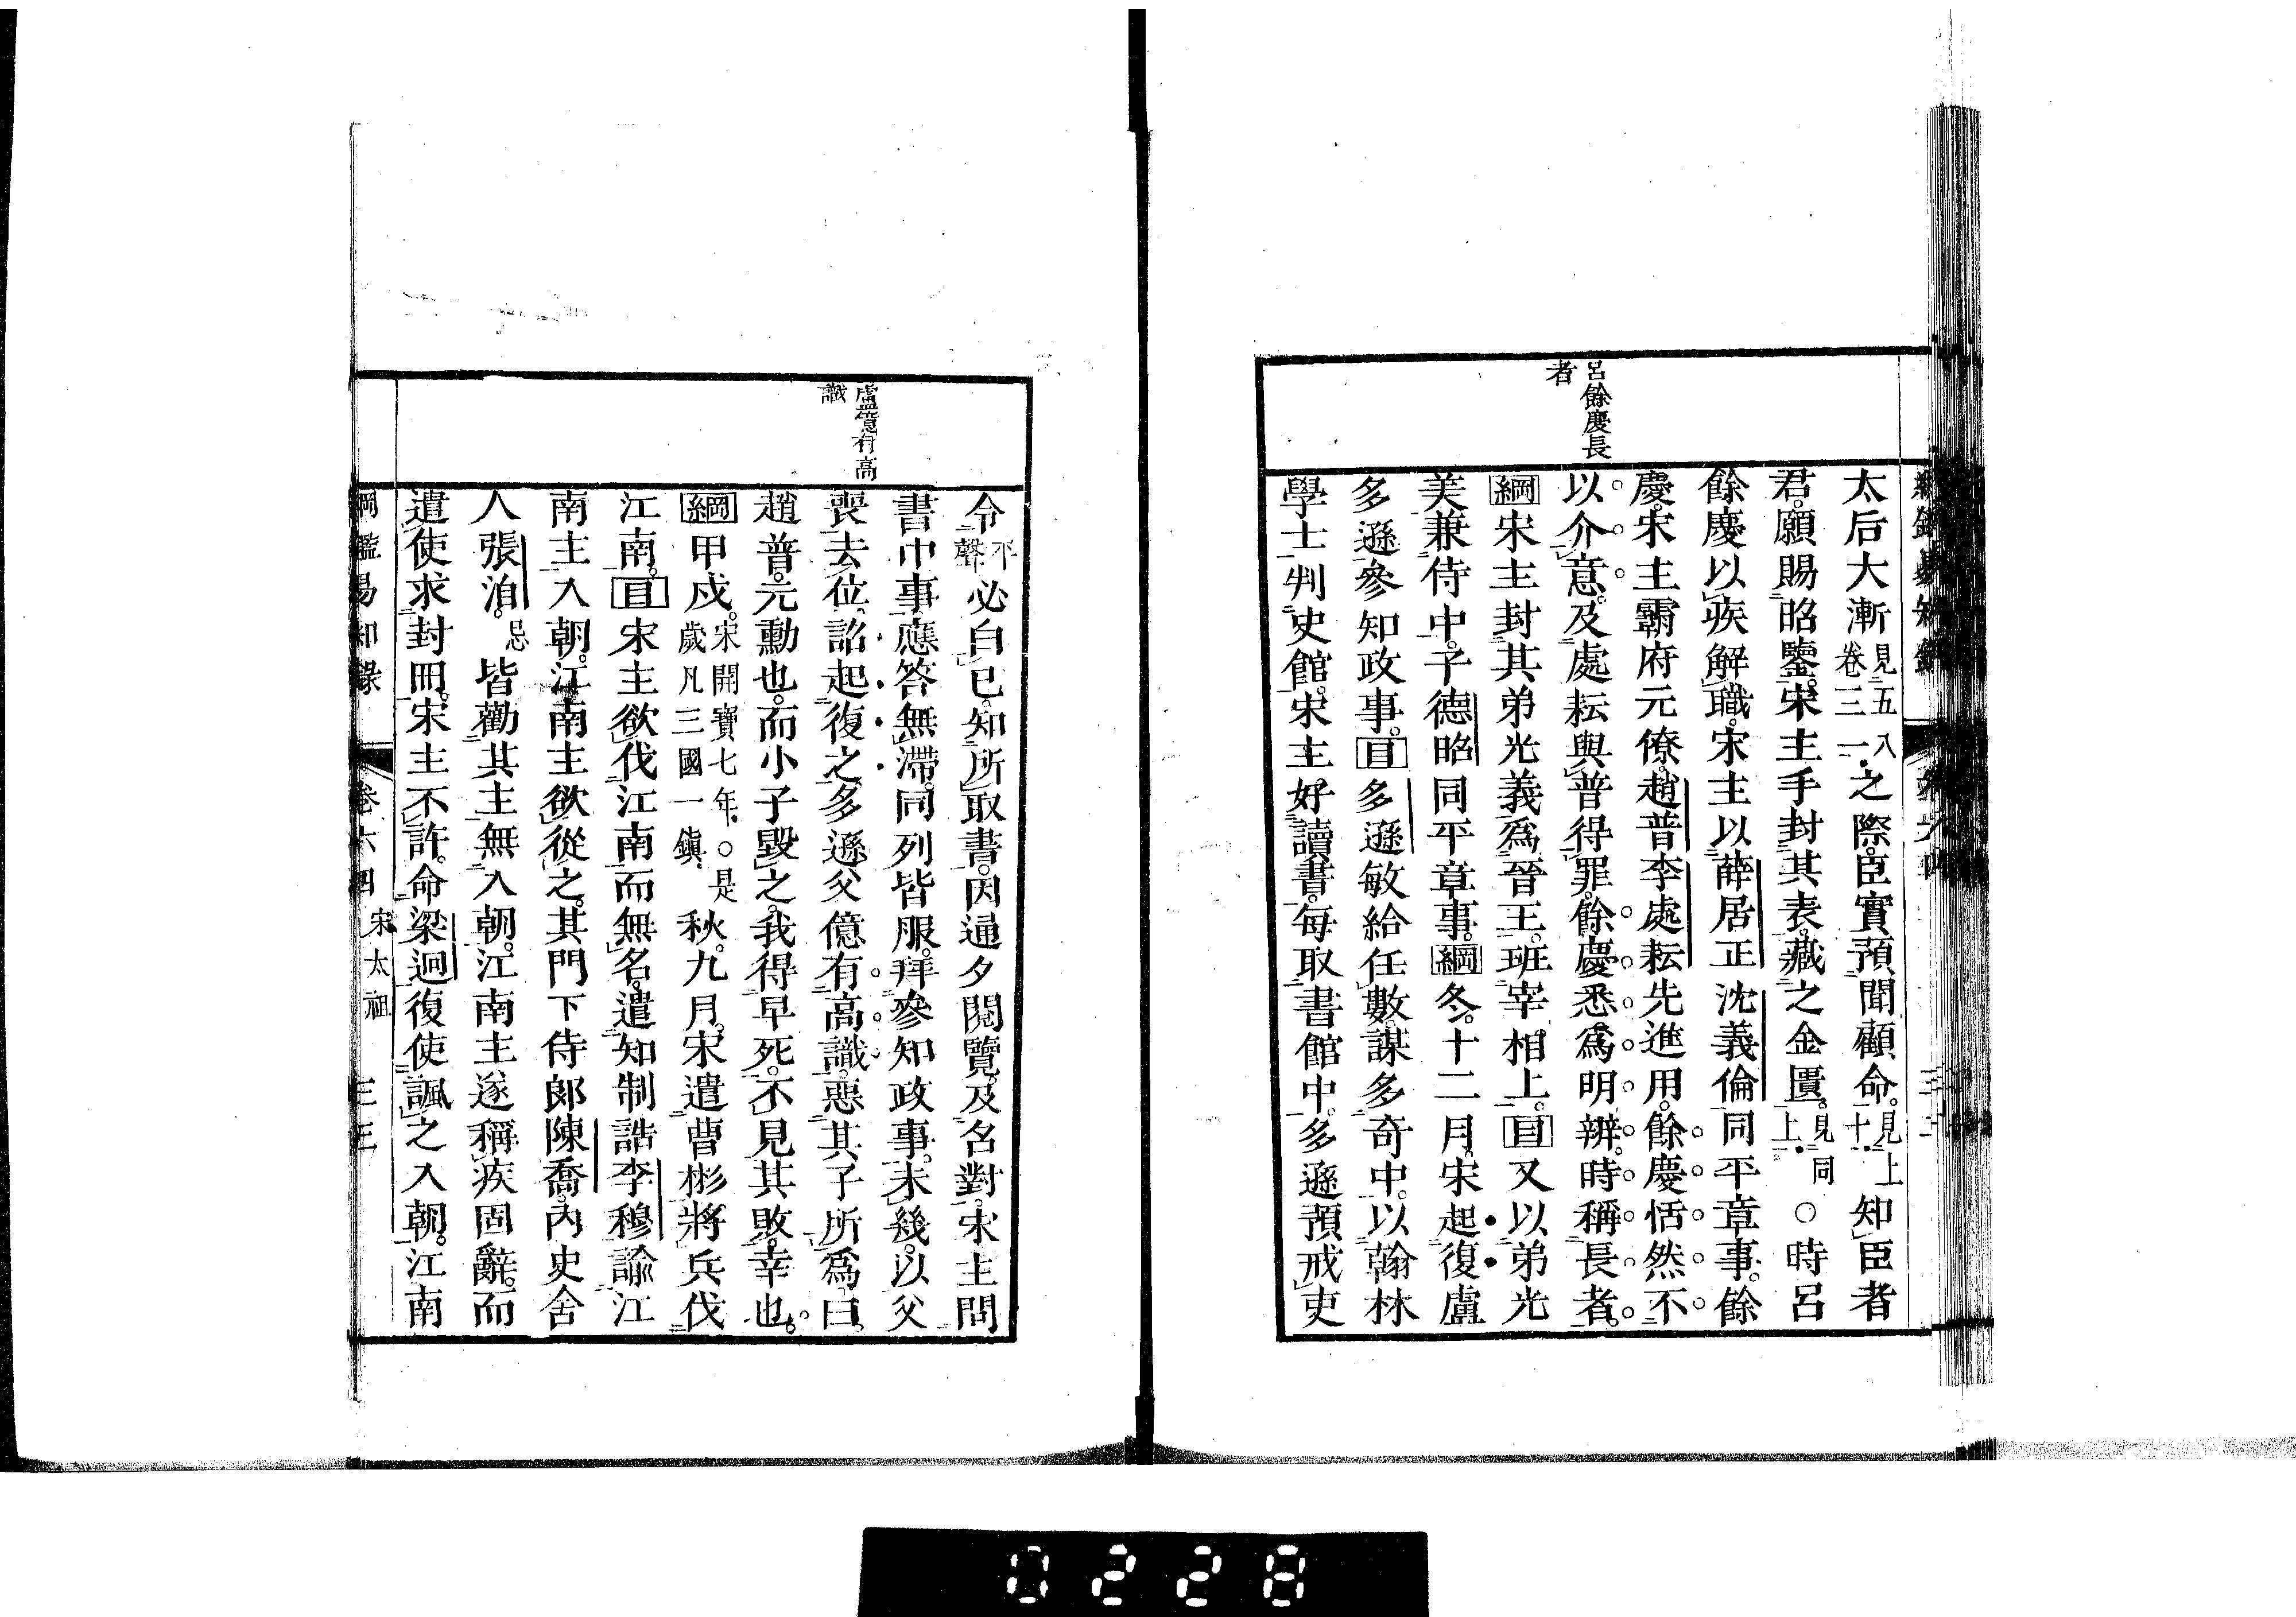 呂餘慶長
者
太后大漸見五八卷三一之際。臣實預聞顧命。見上十知臣者
君。願賜昭鑒。宋主手封其表。藏之金匱。見同上○時呂
餘慶以疾解職。宋主以薛居正沈義倫同平章事。餘
慶。宋主霸府元僚。趙普李處耘先進用。餘慶恬然不
以介意。及處耘與普得罪。餘慶悉爲明辨。時稱長者。
綱宋主封其弟光義爲晉王。班宰相上。目又以弟光
美兼侍中。子德昭同平章事。綱冬。十二月。宋起復盧
多遜參知政事。目多遜敏給任數。謀多奇中。以翰林
學士判史館。宋主好讀書。每取書館中。多遜預戒吏
盧億有高
識
令平聲必白已。知所取書。因通夕閱覽。及名對。宋主問
書中事。應答無滯。同列皆服。拜參知政事。未幾。以父
喪去位。詔起復之。多遜父億有高識。惡其子所爲。曰。
趙普。元勳也。而小子毀之。我得早死。不見其敗。幸也。
綱甲戌。宋開寶七年。○是歲凡三國一鎭秋。九月。宋遣曹彬將兵伐
江南。目宋主欲伐江南而無名。遣知制誥李穆諭江
南主入朝。江南主欲從之。其門下侍郞陳喬。內史舍
人張洎。忌皆勸其主無入朝。江南主遂稱疾固辭。而
遣使求封冊。宋主不許。命梁迥復使諷之入朝。江南
綱鑑易知錄 卷六四 宋太祖 三三
0228